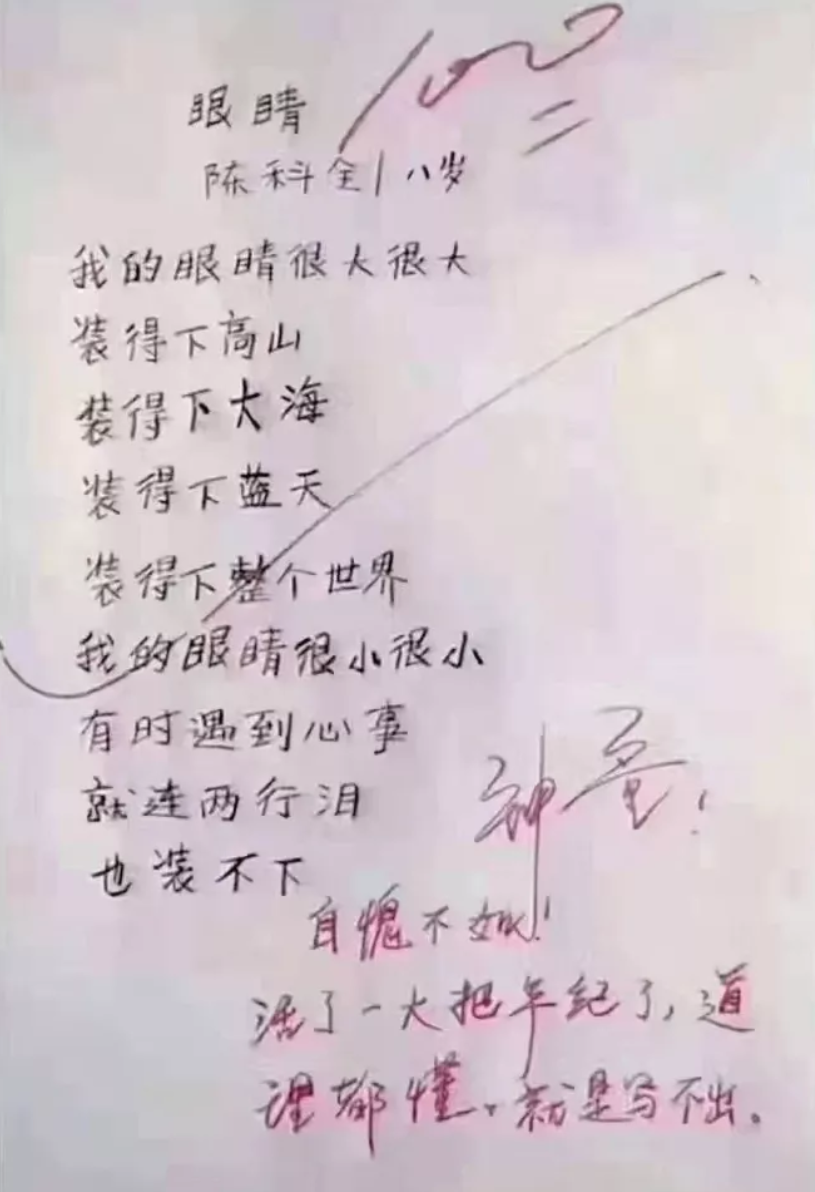 100
眼睛
陈科全/八岁
我的眼睛很大很大
装得下高山
装得下大海
装得下蓝天
装得下整个世界
我的眼睛很小很小
有时遇到心事
就连两行泪
也装不下
神童!
自愧不如!
活了一大把年纪了,道
理都懂,就是写不出。